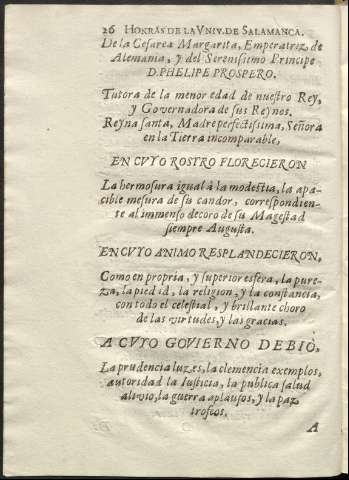 26 HONRAS DE LA VNIV. DE SALAMANCA.
De la Cesarea Margarita, Emperatriz de
Alemania, y del Serenissimo Principe
D. PHELIPE PROSPERO.
Tutora de la menor edad de nuestro Rey,
y Governadora de sus Reynos.
Reyna santa, Madre perfectissima, Señora
en la Tierra incomparable,
EN CUYO ROSTRO FLORECIERON
La hermosura igual à la modestia, la apa-
cible mesura de su candor, correspondien-
te al immenso decoro de su Magestad
siempre Augusta.
EN CUYO ANIMO RESPLANDECIERON,
Como en propria, y superior esfera, la pure-
za, la piedad, la religion, y la constancia,
con todo el celestial, y brillante choro
de las virtudes, y las gracias.
A CUYO GOVIERNO DEBIÒ,
La prudencia luzes, la clemencia exemplos,
autoridad la Iusticia, la publica salud
alivio, la guerra aplausos, y la paz
trofeos.
A